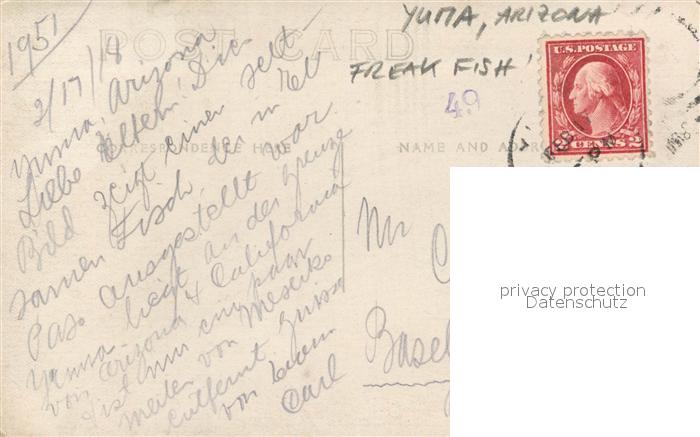 1951
YUMA, ARIZONA
FREAK FISH!
49
POST CARD
U.S. POSTAGE
CENTS 2
CORRESPONDENCE HERE
NAME AND ADDR
2/17/18
Yuma, Arizona
Liebe Eltern! Dies
Bild zeigt einen selt-
samen Fisch, der in El
Paso ausgestellt war
Yuma liegt an der Grenze
von Arizona & California
ist nur ein paar
Meilen von Mexiko
entfernt. Gruss
von Eurem
Carl
Mr
C
Basel
privacy protection
Datenschutz